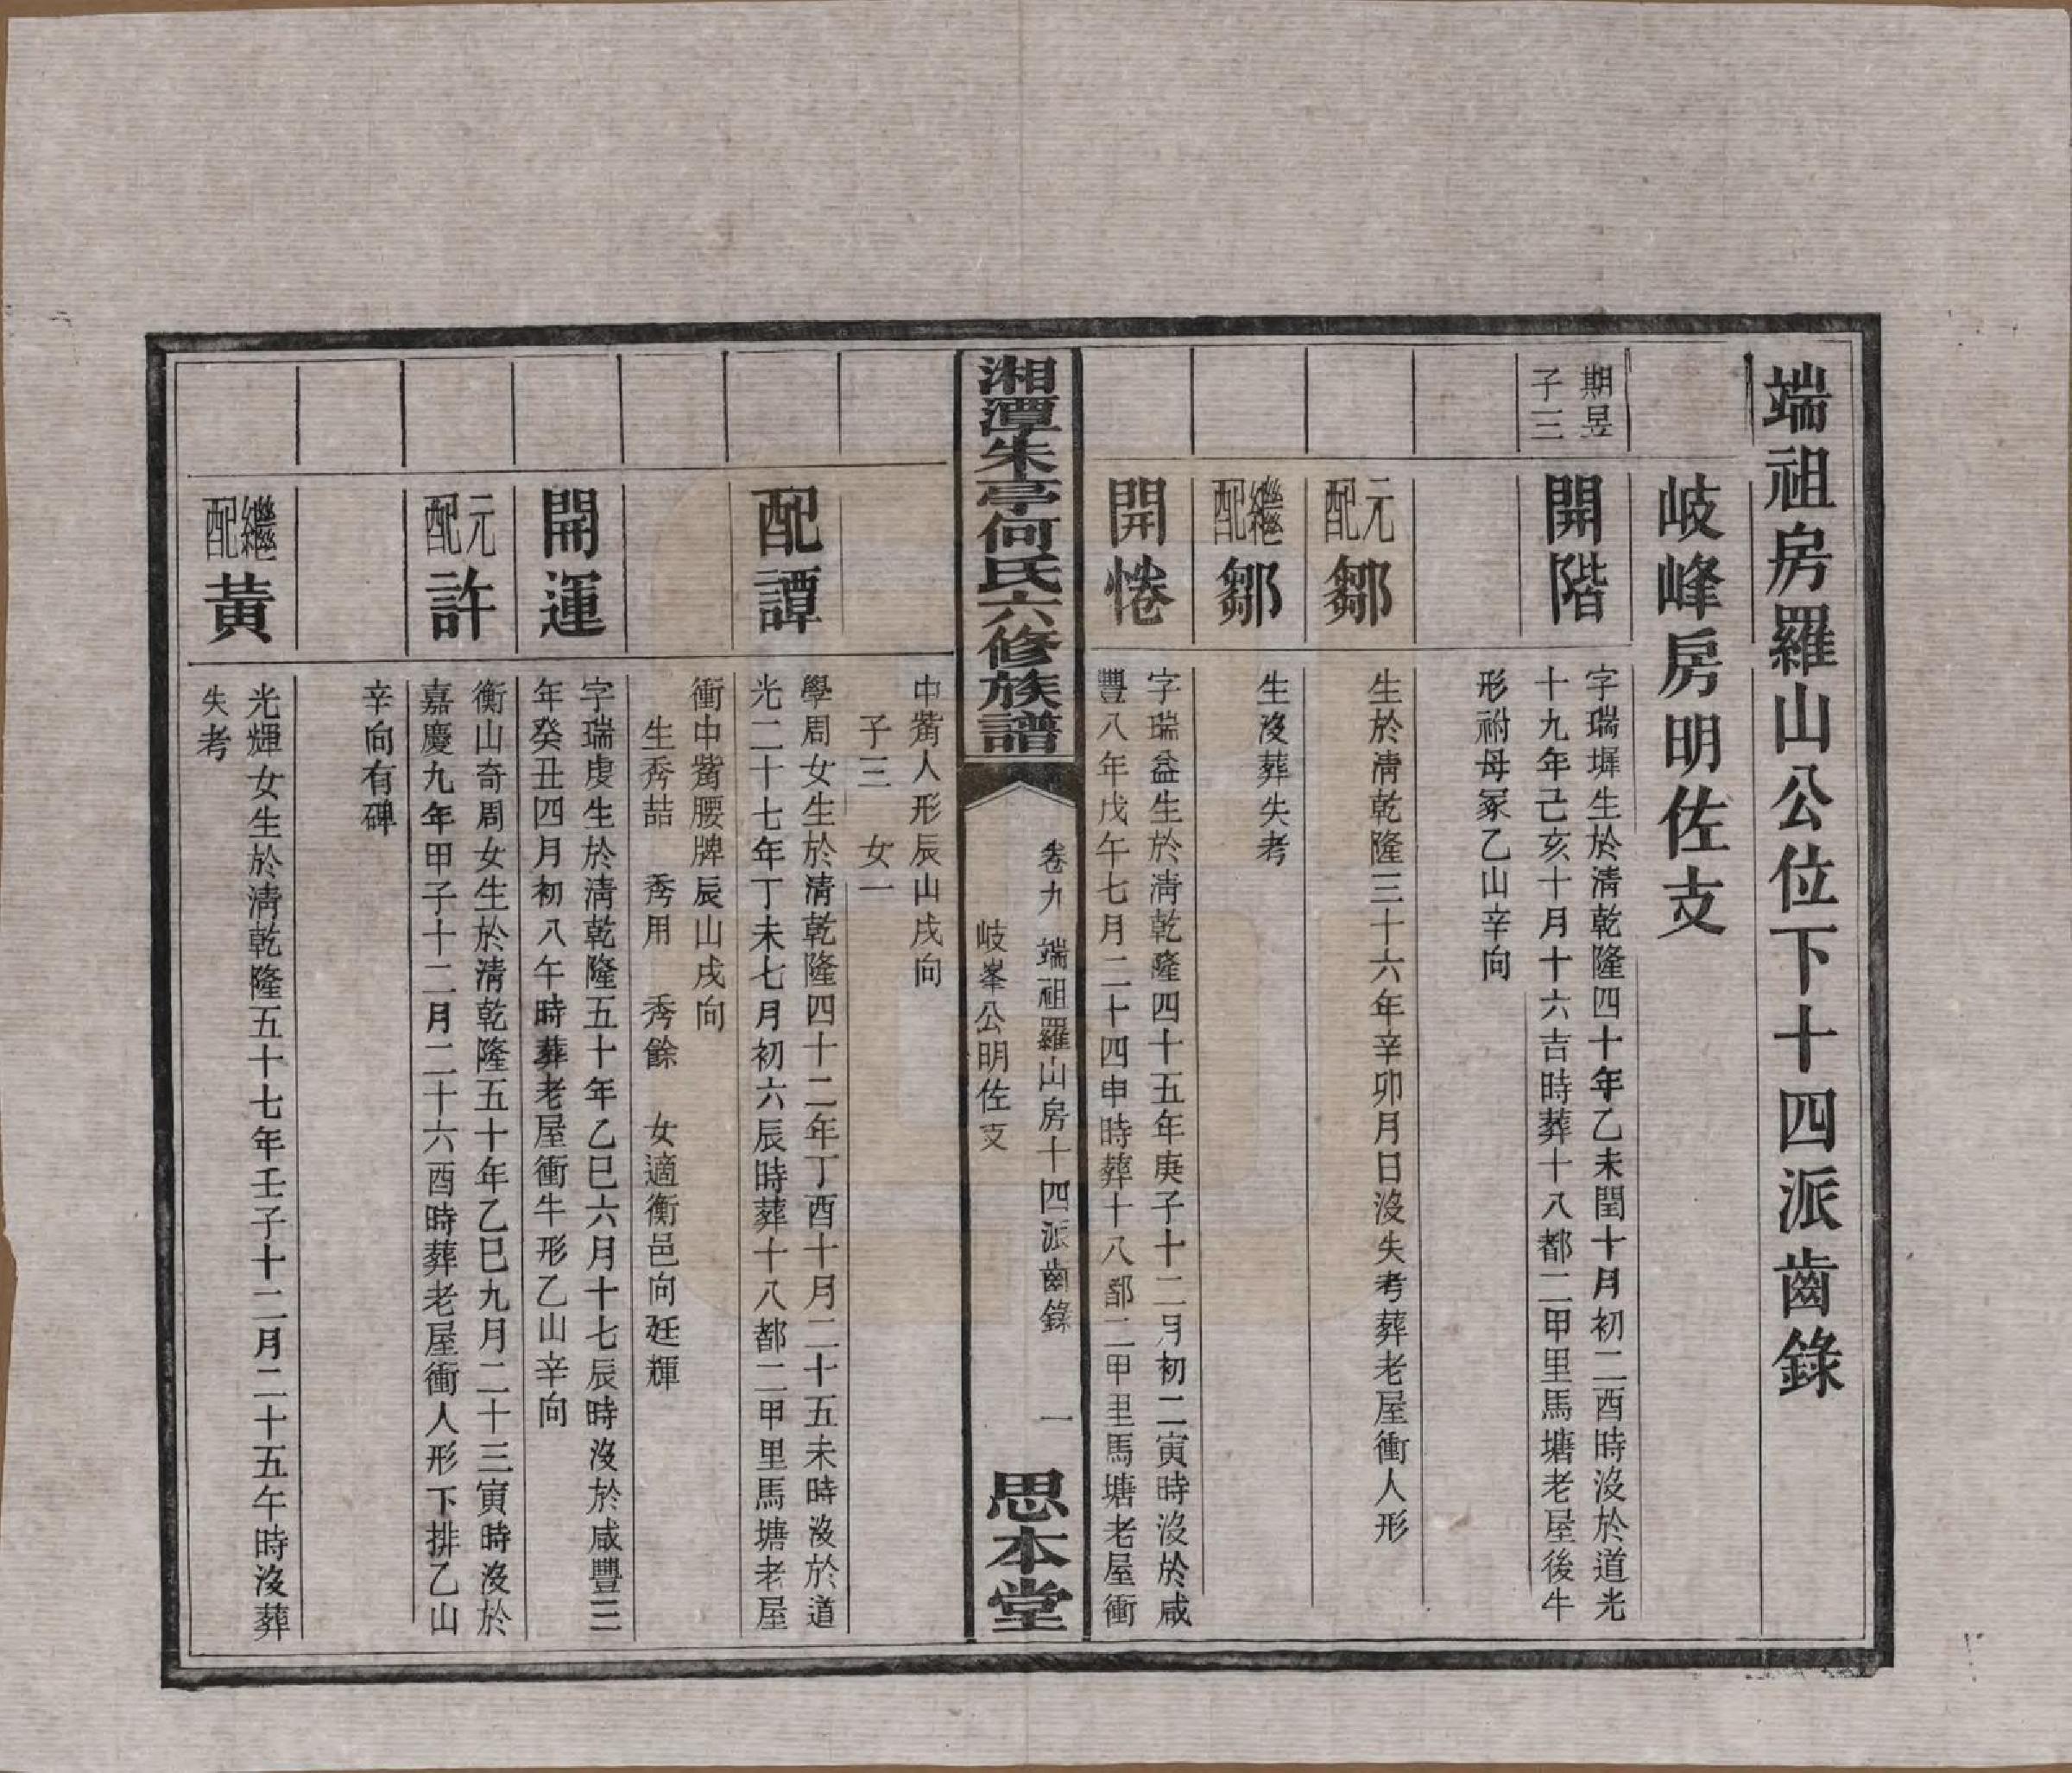 端祖房羅山公位下十四派齒錄
岐峰房明佐支
期昱
子三
開階
字瑞墀生於清乾隆四十年乙未閏十月初二酉時沒於道光
十九年己亥十月十六吉時葬十八都二甲里馬塘老屋後牛
形祔母冢乙山辛向
元配鄒
生於清乾隆三十六年辛卯月日沒失考葬老屋衝人形
繼配鄒
生沒葬失考
開惓
字瑞益生於清乾隆四十五年庚子十二月初二寅時沒於咸
豐八年戊午七月二十四申時葬十八都二甲里馬塘老屋衝
湘潭朱亭何氏六修族譜
卷九 端祖羅山房十四派齒錄 一
岐峯公明佐支
思本堂
中觜人形辰山戌向
子三 女一
配譚
學周女生於清乾隆四十二年丁酉十月二十五未時沒於道
光二十七年丁未七月初六辰時葬十八都二甲里馬塘老屋
衝中觜腰牌辰山戌向
生秀喆 秀用 秀餘 女適衡邑向廷輝
開運
字瑞虔生於清乾隆五十年乙巳六月十七辰時沒於咸豐三
年癸丑四月初八午時葬老屋衝牛形乙山辛向
元配許
衡山奇周女生於清乾隆五十年乙巳九月二十三寅時沒於
嘉慶九年甲子十二月二十六酉時葬老屋衝人形下排乙山
辛向有碑
繼配黃
光輝女生於清乾隆五十七年壬子十二月二十五午時沒葬
失考